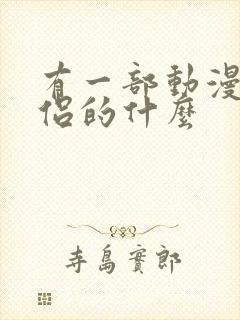 有一部動漫
侶的什麼
寺島實郎